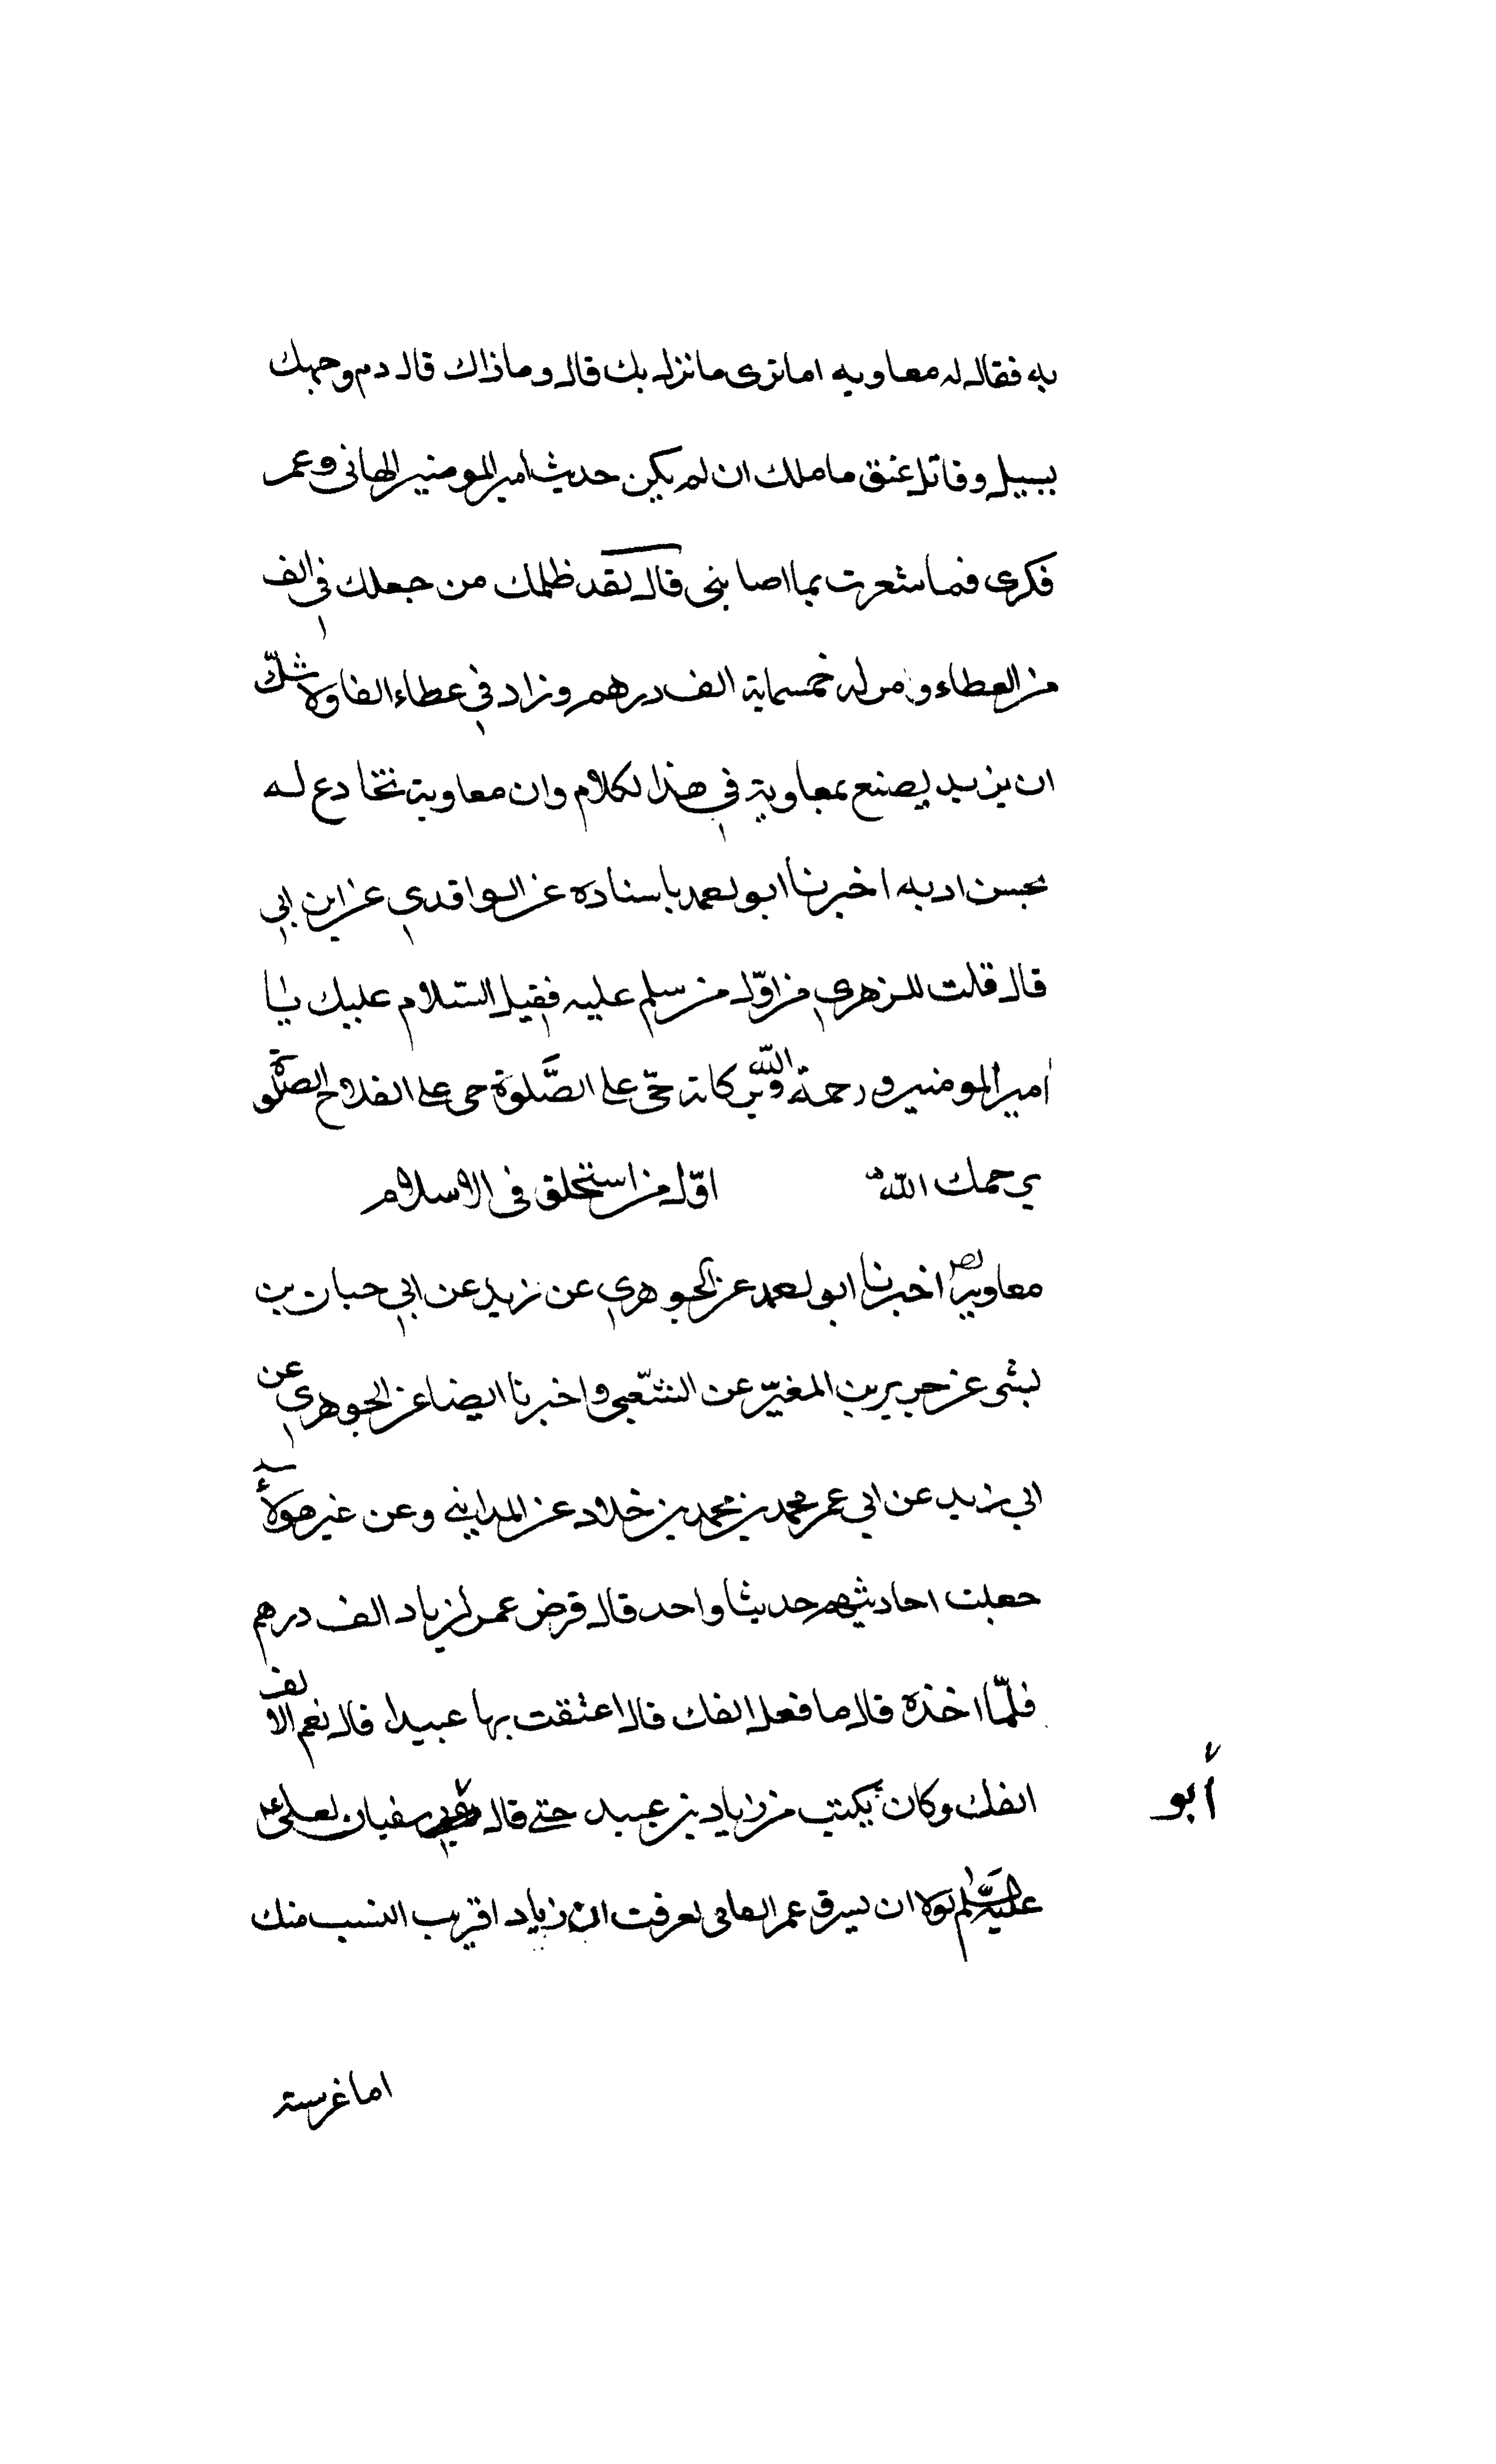 به فقال له معاويه اما ترى ما نزل بك قال وما ذاك قال دم وجهك
يسيل وقاتل عنق ما ملك ان لم يكن حديث امير المومنين الهانى وعمر
فكرى فما شعرت بما اصابنى قال لقد ظلمك من جعلك في الف
من العطاء و من له خمسماية الف درهم وزاد في عطاء الفا ولا شك
ان يزيد يصنع بمعاوية في هذا لكلام وان معاوية تخادع له
بحسن ادبه اخبرنا ابو لعمد باسناده عن الواقدي عن ابن ابي
قال قلت للزهري من اول من سلم عليه فقيل السلام عليك يا
امير المومنين ورحمة الله وبركاته حى على الصلوة حى على الفلاح الصلوة
يرحمك الله اول من استحلق فى الاسلام
معاوية اخبرنا ابو لعمد عن الجوهري عن زيد عن ابي حبان بن
بشى عن جرير بن المغير عن الشعبى واخبرنا ايضا عن الجوهري عن
ابي زيد عن ابي عمر محمد بن محمد بن خلاد عن المدايني وعن غير هولاء
جعلت احاديثهم حديثا واحد قال قرض عمر لزياد الف درهم
فلما اخذه قال ما فعل الفك قال اعتقت بها عبيدا قال نعم الالف
الفك وكان يكتب من زياد بن عبيد حتى قال سفيان لعلى
أبو
عليه السلم لولا ان يسرق عمر العامى لعرفت ان زياد اقريب النسب منك
اما غرسته